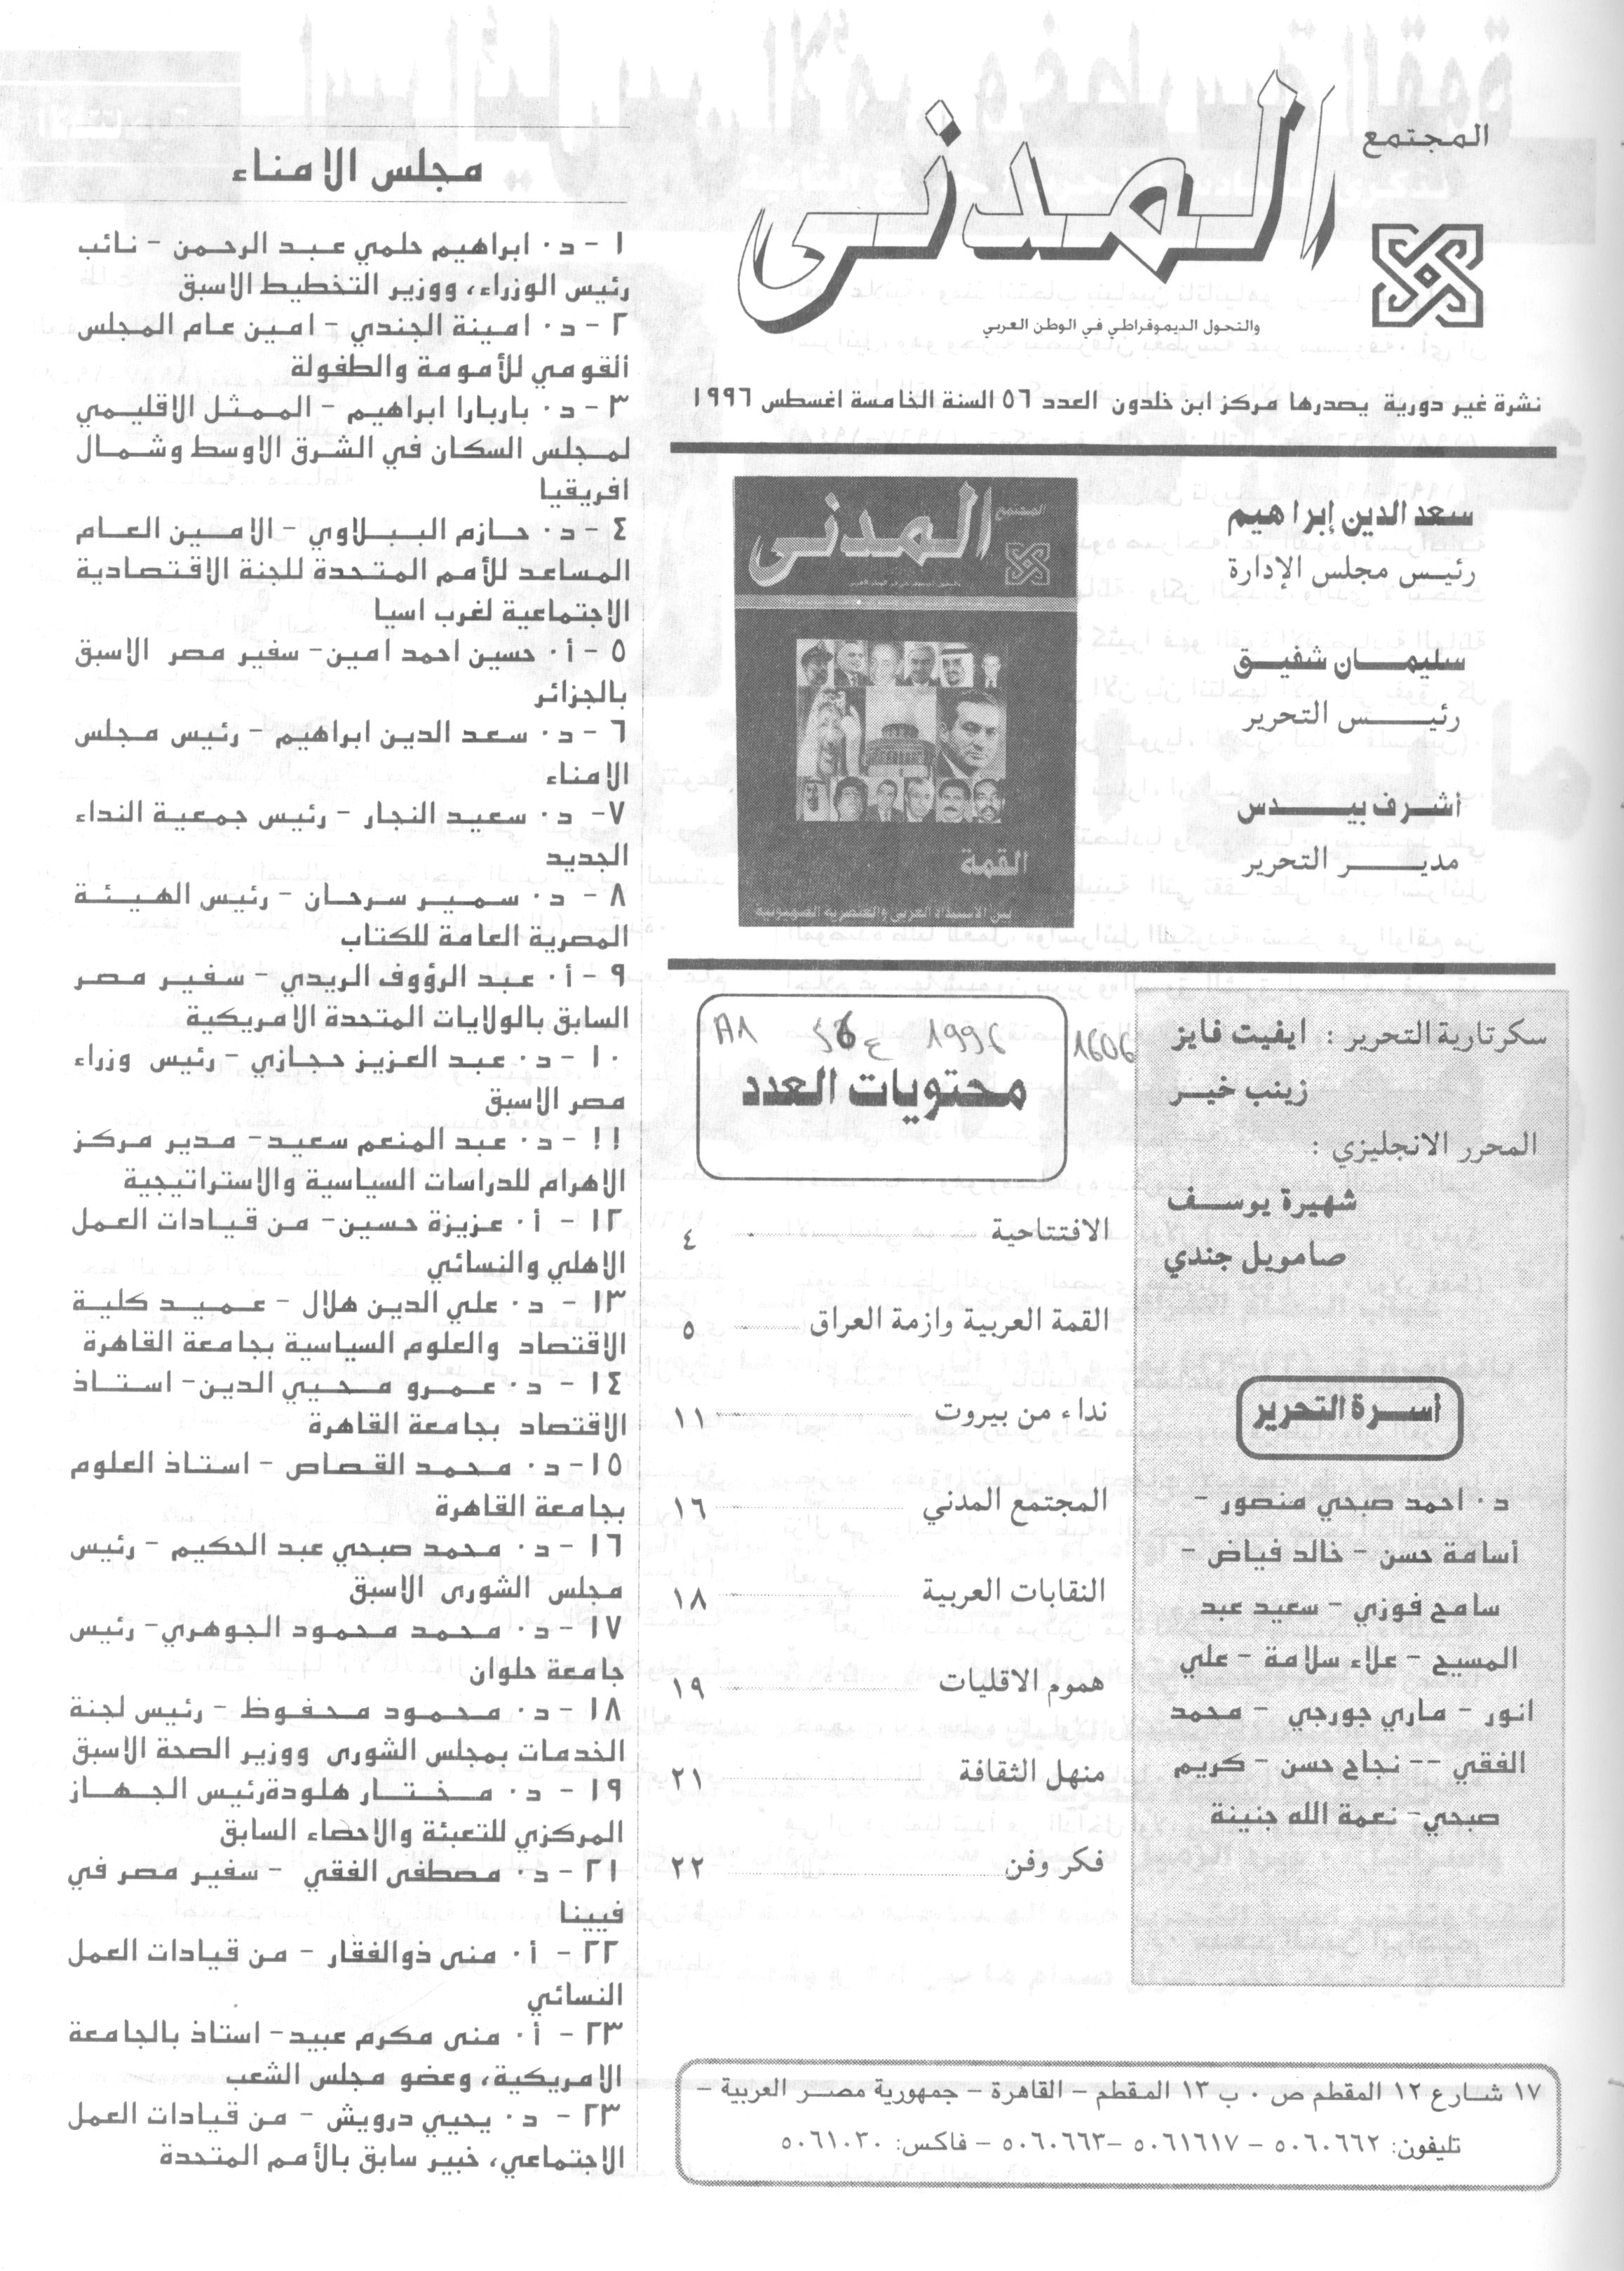 المجتمع
المدنى
والتحول الديموقراطي في الوطن العربي
نشرة غير دورية يصدرها مركز ابن خلدون العدد ٥٦ السنة الخامسة اغسطس ١٩٩٦
سعد الدين إبراهيم
رئيس مجلس الإدارة
سليمان شفيق
رئيس التحرير
أشرف بيدس
مدير التحرير
المجتمع
المدنى
القمة
بين الاستبداد العربى والعنصرية الصهيونية
سكرتارية التحرير : ايفيت فايز
زينب خير
المحرر الانجليزي :
شهيرة يوسف
صامويل جندي
أسرة التحرير
د. احمد صبحي منصور -
أسامة حسن - خالد فياض -
سامح فوزي - سعيد عبد
المسيح - علاء سلامة - علي
انور - ماري جورجي - محمد
الفقي -- نجاح حسن - كريم
صبحي - نعمة الله جنينة
A1 1996 1606
محتويات العدد
الافتتاحية ٤
القمة العربية وازمة العراق ٥
نداء من بيروت ١١
المجتمع المدني ١٦
النقابات العربية ١٨
هموم الاقليات ١٩
منهل الثقافة ٢١
فكر وفن ٢٢
١٧ شارع ١٢ المقطم ص . ب ١٣ المقطم - القاهرة - جمهورية مصر العربية -
تليفون: ٥٠٦٠٦٦٢ - ٥٠٦١٦١٧ -٥٠٦٠٦٦٣ - فاكس: ٥٠٦١٠٣٠
مجلس الامناء
١ - د. ابراهيم حلمي عبد الرحمن - نائب
رئيس الوزراء، ووزير التخطيط الاسبق
٢ - د. امينة الجندي - امين عام المجلس
القومي للأمومة والطفولة
٣ - د. باربارا ابراهيم - الممثل الاقليمي
لمجلس السكان في الشرق الاوسط وشمال
افريقيا
٤ - د. حازم الببلاوي - الامين العام
المساعد للأمم المتحدة للجنة الاقتصادية
الاجتماعية لغرب اسيا
٥ - أ. حسين احمد امين- سفير مصر الاسبق
بالجزائر
٦ - د. سعد الدين ابراهيم - رئيس مجلس
الامناء
٧- د. سعيد النجار - رئيس جمعية النداء
الجديد
٨ - د. سمير سرحان - رئيس الهيئة
المصرية العامة للكتاب
٩ - أ. عبد الرؤوف الريدي - سفير مصر
السابق بالولايات المتحدة الامريكية
١٠ - د. عبد العزيز حجازي - رئيس وزراء
مصر الاسبق
!! - د. عبد المنعم سعيد- مدير مركز
الاهرام للدراسات السياسية والاستراتيجية
١٢ - أ. عزيزة حسين- من قيادات العمل
الاهلي والنسائي
١٣ - د. علي الدين هلال - عميد كلية
الاقتصاد والعلوم السياسية بجامعة القاهرة
١٤ - د. عمرو محيي الدين- استاذ
الاقتصاد بجامعة القاهرة
١٥- د. محمد القصاص - استاذ العلوم
بجامعة القاهرة
١٦ - د. محمد صبحي عبد الحكيم - رئيس
مجلس الشورى الاسبق
١٧ - د. محمد محمود الجوهري- رئيس
جامعة حلوان
١٨ - د. محمود محفوظ - رئيس لجنة
الخدمات بمجلس الشورى ووزير الصحة الاسبق
١٩ - د. مختار هلودةرئيس الجهاز
المركزي للتعبئة والاحصاء السابق
٢١ - د. مصطفى الفقي - سفير مصر في
فيينا
٢٢ - أ. منى ذوالفقار - من قيادات العمل
النسائي
٢٣ - أ. منى مكرم عبيد- استاذ بالجامعة
الامريكية، وعضو مجلس الشعب
٢٣ - د. يحيي درويش - من قيادات العمل
الاجتماعي، خبير سابق بالأمم المتحدة